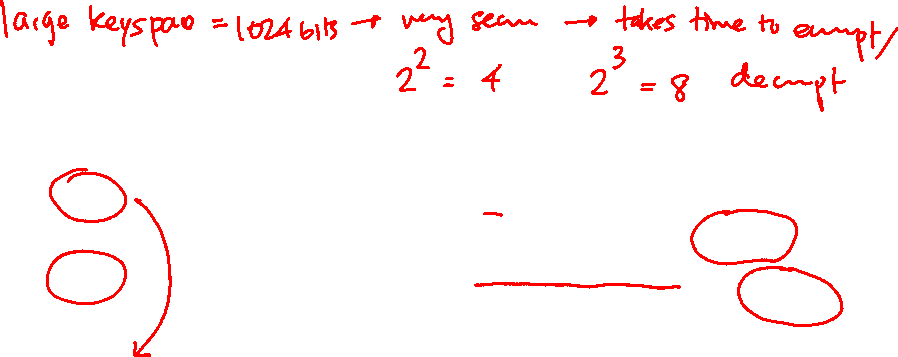 large keyspace = 1024 bits → very secure → takes time to encrypt/
2² = 4 2³ = 8 decrypt